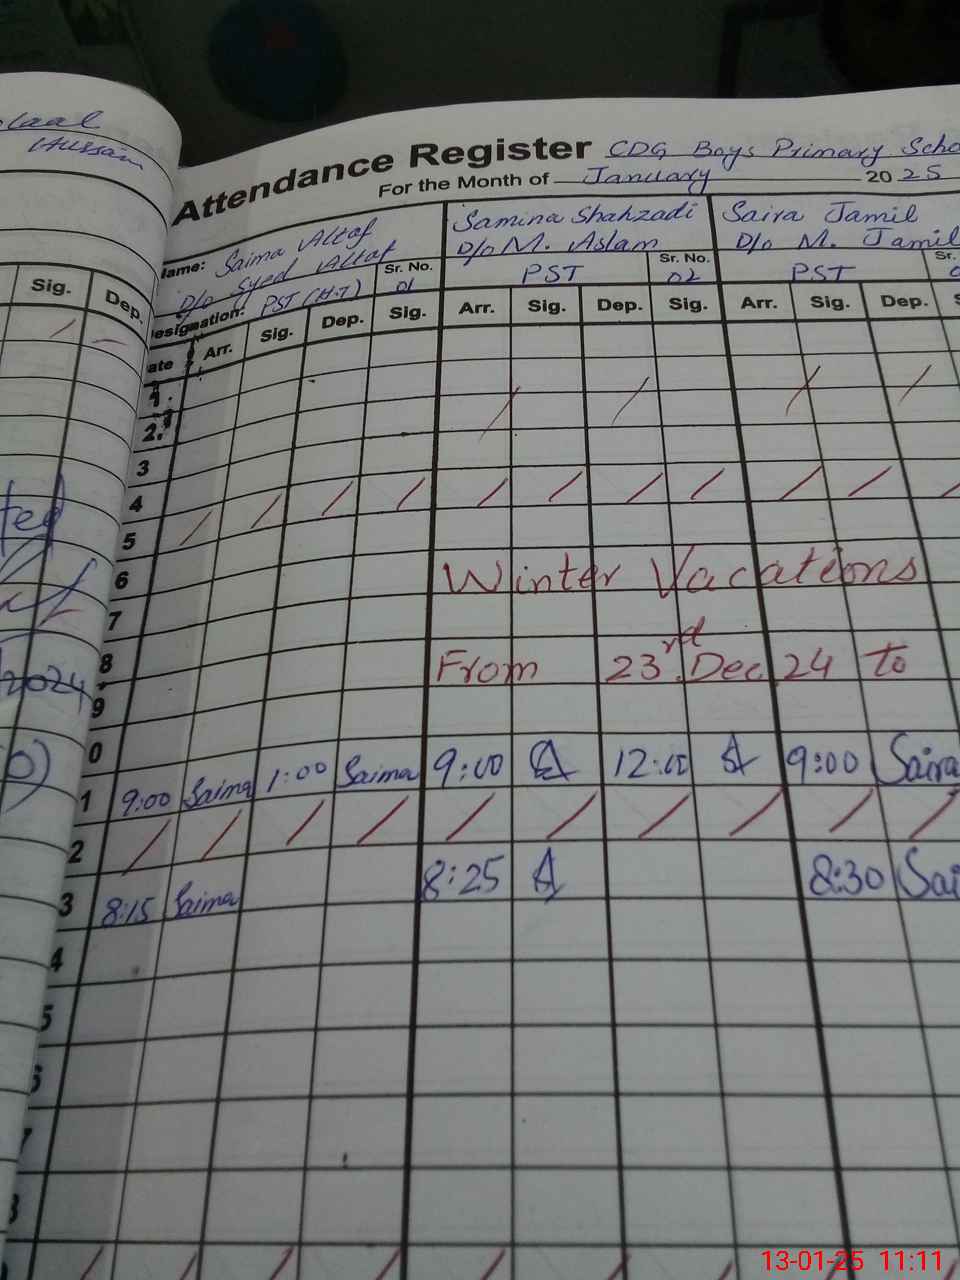 Hussain
Attendance Register CDG Boys Primary Scho
For the Month of January 2025
Name: Saima Altaf
D/o Syed Altaf
Designation: PST (H.T) Sr. No. 01
Samina Shahzadi
D/o M. Aslam
PST Sr. No. 02
Saira Jamil
D/o M. Jamil
PST Sr.
Sig. Dep.
ate Arr. Sig. Dep. Sig. Arr. Sig. Dep. Sig. Arr. Sig. Dep. S
1.
2.
3
4
5
6 Winter Vacations
7
8 From 23rd Dec 24 to
2024
9
0
1 9:00 Saima 1:00 Saima 9:00 12:00 9:00 Saira
2
3 8:15 Saima 8:25 8:30 Sai
4
5
6
7
8
13-01-25 11:11